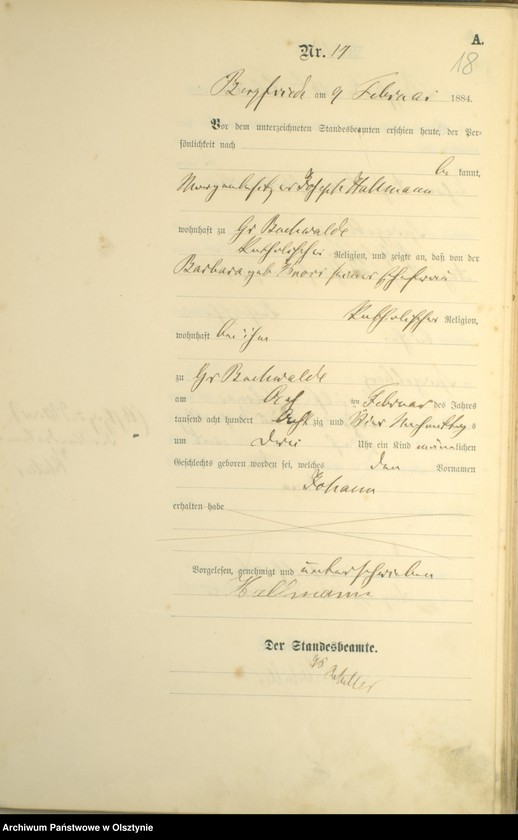 A.
18
Nr. 17
Bergfriede am 9 Februar 1884.
Vor dem unterzeichneten Standesbeamten erschien heute, der Per-
sönlichkeit nach
be kannt,
Joseph Hallmann
wohnhaft zu Gr Buchwalde
katholischer Religion, und zeigte an, daß von der
Barbara geb. seiner Ehefrau
katholischer Religion,
wohnhaft bei ihm
zu Gr Buchwalde
am Acht ten Februar des Jahres
tausend acht hundert Acht zig und Vier Nachmittags
um Drei Uhr ein Kind männlichen
Geschlechts geboren worden sei, welches den Vornamen
Johann
erhalten habe
Vorgelesen, genehmigt und unterschrieben
Hallmann
Der Standesbeamte.
Archiwum Państwowe w Olsztynie